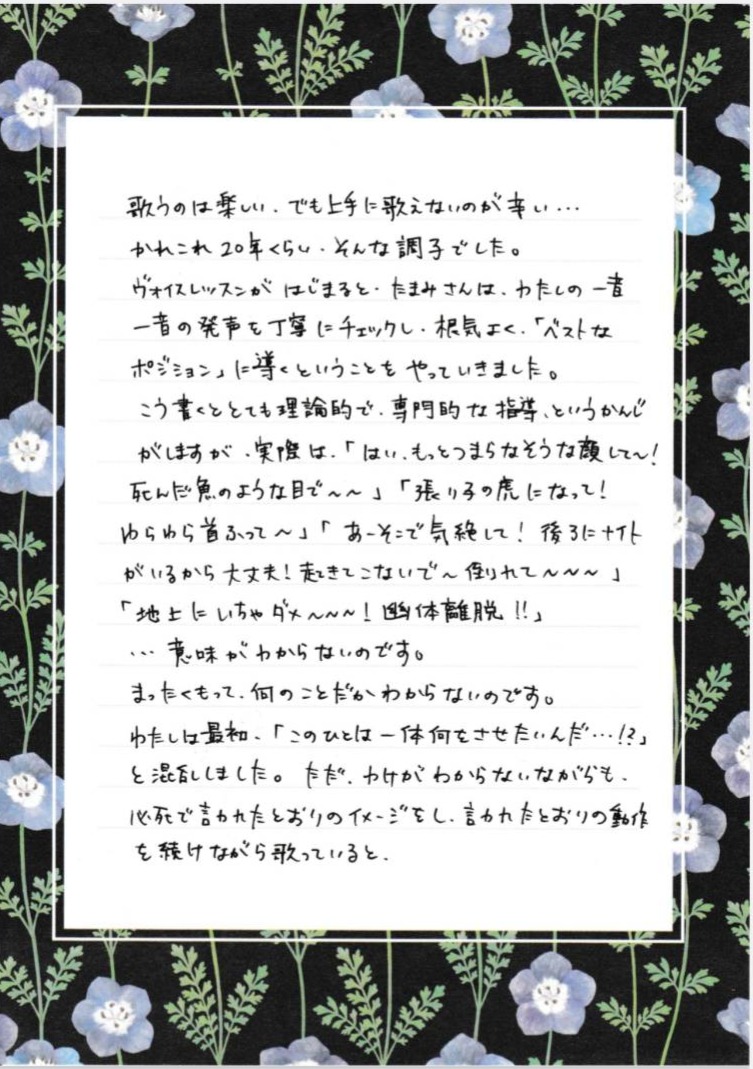 歌うのは楽しい、でも上手に歌えないのが辛い…
かれこれ20年くらい、そんな調子でした。
ヴォイスレッスンがはじまると、たまみさんは、わたしの一音
一音の発声を丁寧にチェックし、根気よく、「ベストな
ポジション」に導くということをやっていきました。
こう書くととても理論的で、専門的な指導、というかんじ
がしますが、実際は、「はい、もっとつまらなそうな顔して〜!
死んだ魚のような目で〜〜」「張り子の虎になって!
ゆらゆら首ふって〜」「あーそこで気絶して! 後ろにナイト
がいるから大丈夫!起きてこないで〜倒れて〜〜〜」
「地上にいちゃダメ〜〜〜!幽体離脱!!」
…意味がわからないのです。
まったくもって、何のことだかわからないのです。
わたしは最初、「このひとは一体何をさせたいんだ…!?」
と混乱しました。ただ、わけがわからないながらも、
必死で言われたとおりのイメージをし、言われたとおりの動作
を続けながら歌っていると、